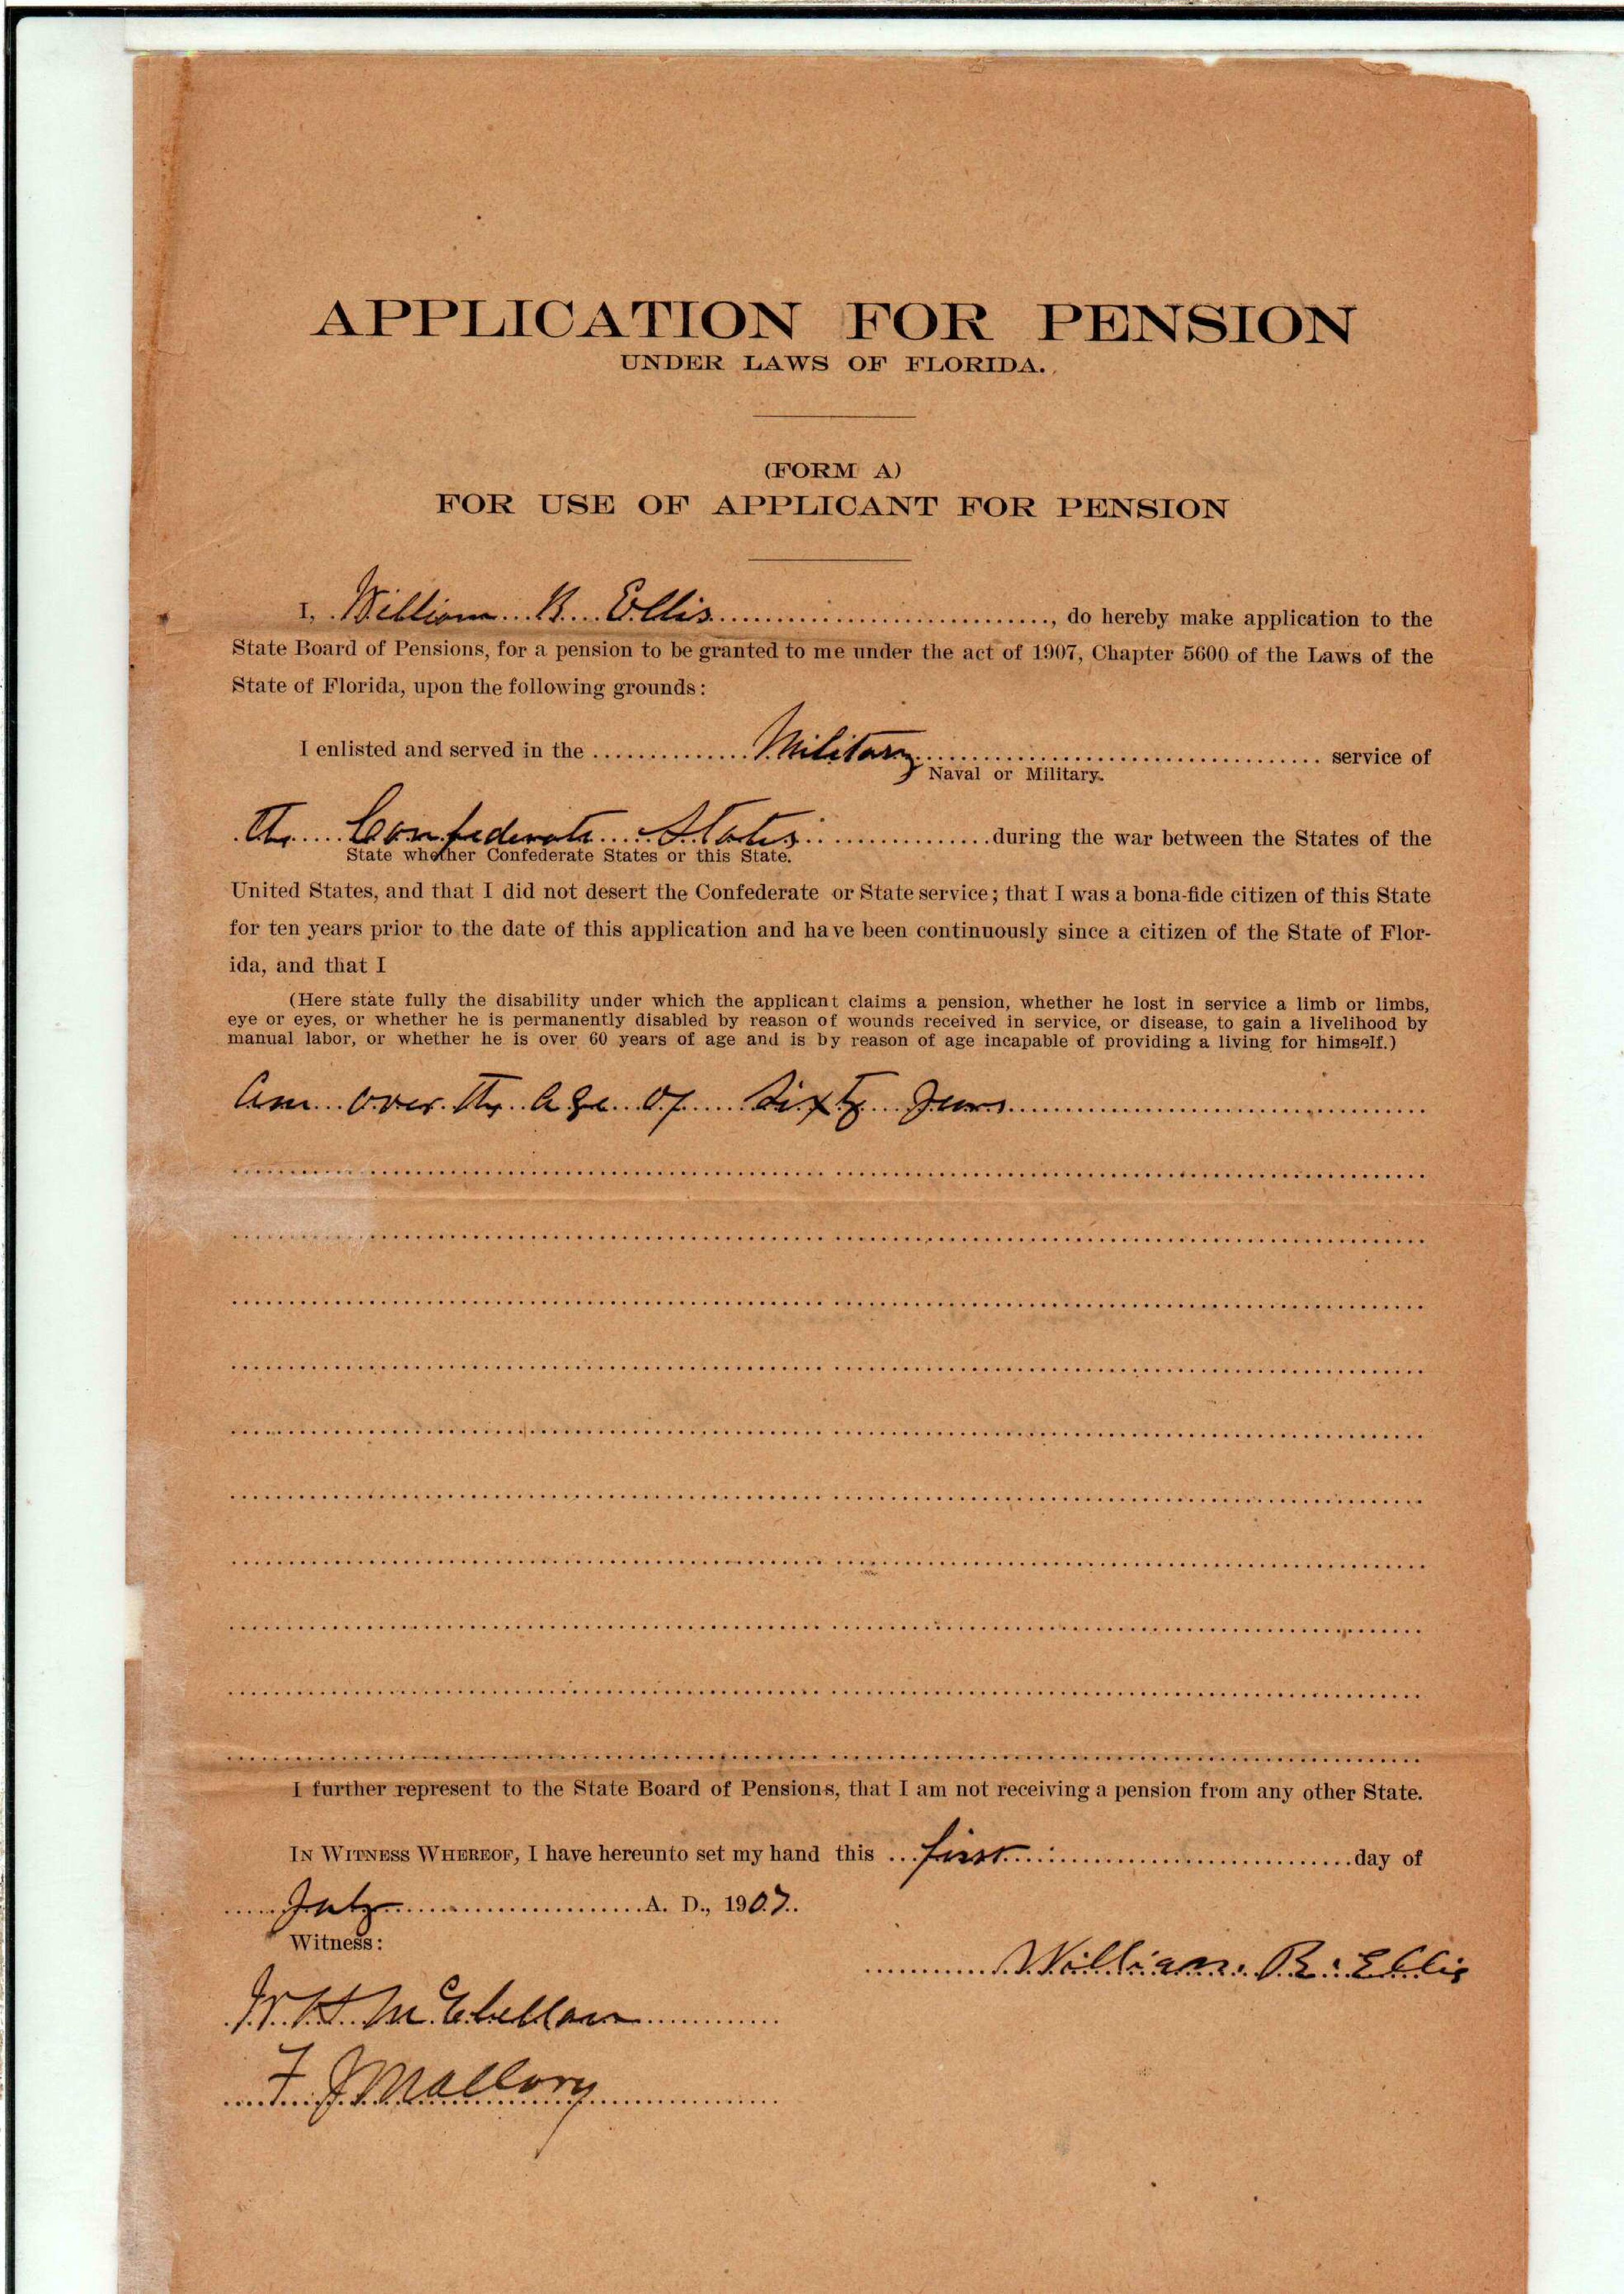 APPLICATION FOR PENSION
UNDER LAWS OF FLORIDA.
(FORM A)
FOR USE OF APPLICANT FOR PENSION
I, William R. Ellis, do hereby make application to the
State Board of Pensions, for a pension to be granted to me under the act of 1907, Chapter 5600 of the Laws of the
State of Florida, upon the following grounds:
I enlisted and served in the Military service of
Naval or Military.
The Confederate States during the war between the States of the
State whether Confederate States or this State.
United States, and that I did not desert the Confederate or State service; that I was a bona-fide citizen of this State
for ten years prior to the date of this application and have been continuously since a citizen of the State of Flor-
ida, and that I
(Here state fully the disability under which the applicant claims a pension, whether he lost in service a limb or limbs,
eye or eyes, or whether he is permanently disabled by reason of wounds received in service, or disease, to gain a livelihood by
manual labor, or whether he is over 60 years of age and is by reason of age incapable of providing a living for himself.)
am over the age of sixty years
I further represent to the State Board of Pensions, that I am not receiving a pension from any other State.
IN WITNESS WHEREOF, I have hereunto set my hand this first day of
July A. D., 1907.
Witness:
William R. Ellis
W. H. McClellan
F. J. Mallory